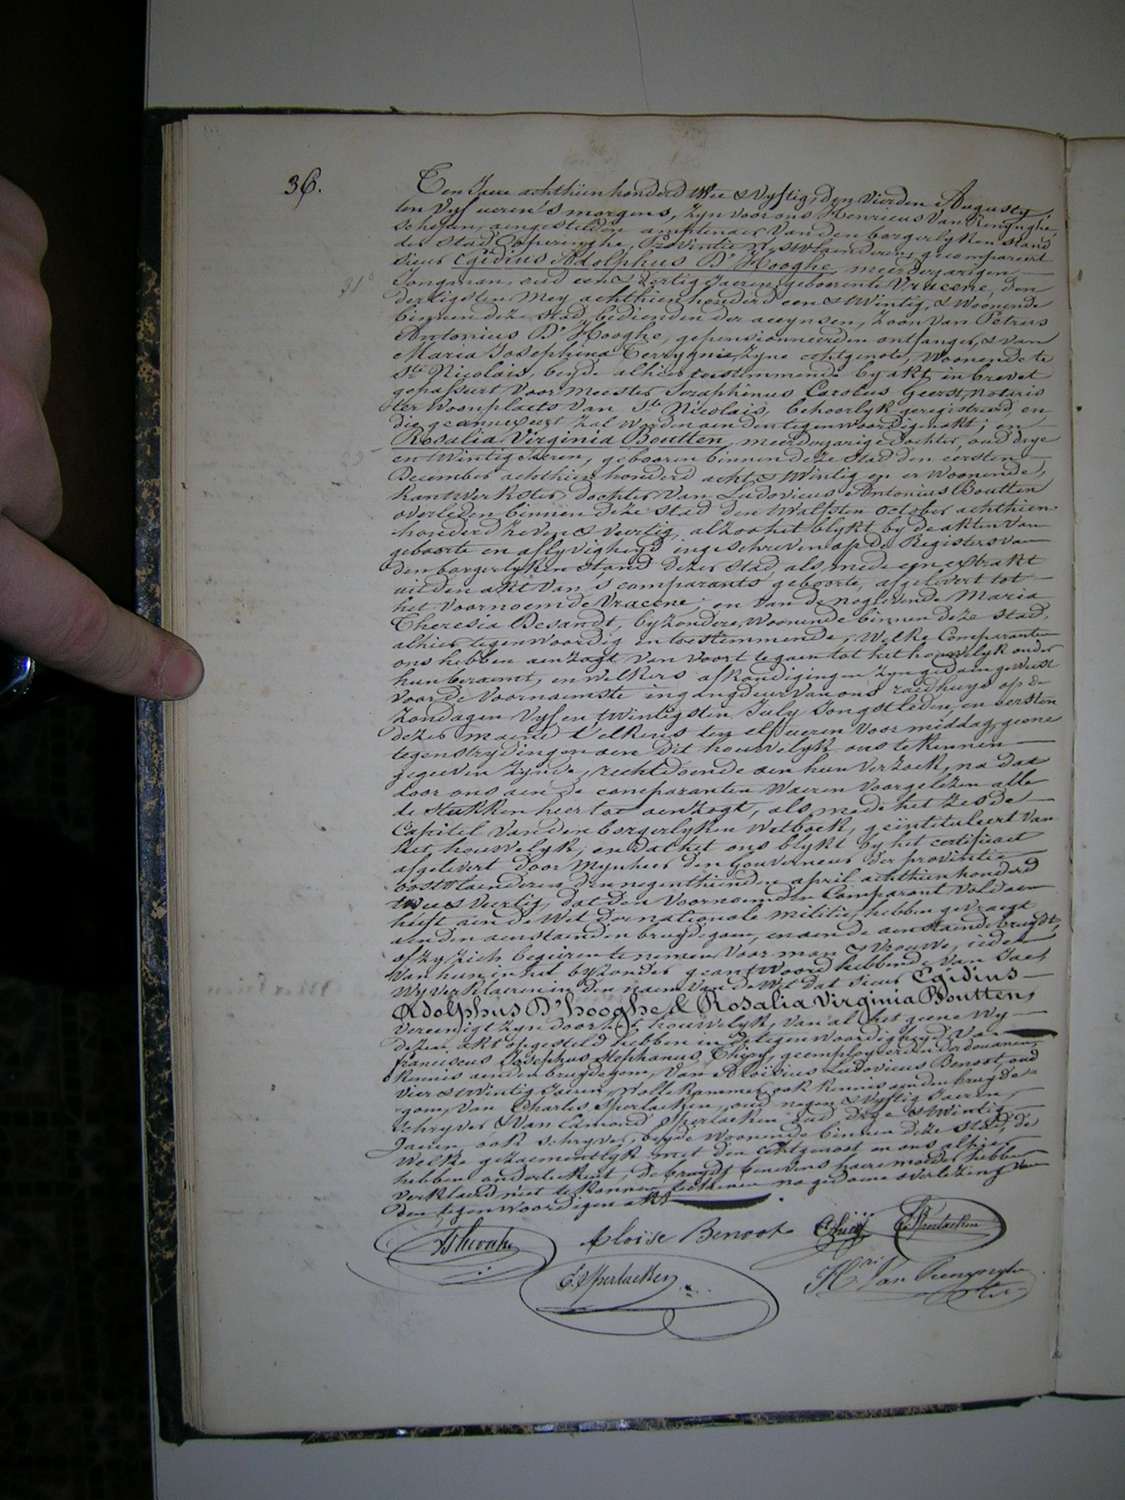 36.
Ten Jaere achthien honderd twee & Vyftig, den Vierden Augusty,
ten Vyf ueren 's morgens, Zyn voor ons Henricus Van Renynghe,
Schepen, aengestelden amptenaer Van den borgerlyken Stand
der Stad Poperinghe, Provintie Westvlaenderen gecompareert
Sieur Egidius Adolphus D'Hooghe, meerderjarigen
Jongman, oud een & Dertig Jaeren, geboren te Vracene, den
31e
dertigsten Mey achthien honderd een & Wintig, & Woonende
binnen deze Stad, bedienden der accynsen, Zoon Van Petrus
Antonius D'Hooghe, gepensionneerden ontfanger, & van
Maria Josephina zyne echtgenote, Woonende te
St Nicolais, beyde alhier toestemmende by akt in brevet
gepasseert voor Meester Seraphinus Carolus Geerts, notaris
ter Woonplaets van Ste Nicolais, behoorlyk geregistreerd, en
die geannexeert zal worden aen den tegenwoordigen akt; en
Rosalia Virginia Boutten, meerderjarige dochter, oud drye
en Wintig Jaeren, geboren binnen deze Stad den eersten
December achthien honderd acht & Wintig en er Woonende,
kantwerkster, dochter Van Ludovicus Antonius Boutten
overleden binnen deze Stad den Walfsten October achthien
honderd zeven & veertig, alzoo het blykt by de akten van
geboorte en aflyvigheyd ingeschreven op de Registers van
den borgerlyken Stand dezer Stad als mede een extrakt
uit den akt van 's comparants geboorte, afgelevert tot
het Voornoemde Vracene; en Van de nog levende Maria
Theresia Besandt, byzondere, Woonende binnen deze Stad,
alhier tegenwoordig en toestemmende, Welke Comparanten
ons hebben aenzogt van voort te gaen tot het houwelyk onder
hun beraemt, en welkers afkondigingen zyn gedaen geweest
voor de Voornaemste ingangdeur van ons raedhuys op de
Zondagen Vyf en twintigsten July Jongstleden, en eersten
dezer maend telkens ten elf ueren Voormiddag, geene
tegenstrydingen aen dit houwelyk ons te kennen
gegeven zynde, rechtdoende aen hun Verzoek, na dat
door ons aen de comparanten Waeren voorgelezen alle
de stukken hier toe aenzogt, als mede het Zesde
Capittel van den borgerlyken Wetboek, geïntituleert Van
het houwelyk, en dat het ons blykt by het certificaet
afgelevert door Mynheer den Gouverneur der provintie
oostvlaenderen den negenthienden april achthien honderd
twee & Veertig, dat den Voornoemden Comparant Voldaen
heeft aen de Wet der nationale militie, hebben gevraegt
aen den aenstaenden bruydegom, en aen de aenstaende bruydt,
of zy zich begeeren te nemen Voor man & Vrouwe, ieder
van hun in het byzonder geantwoord hebbende Van Jae,
Wy Verklaeren in den naem Van de Wet dat Sieur Egidius
Adolphus D'hooghe & Rosalia Virginia Boutten,
Vereenigt zyn door het houwelyk, Van al het geene Wy
dezen akt opgesteld hebben in de tegenwoordigheyd Van
Franciscus Josephus Stephanus Thiry, geemployeerden der douanen,
kennis aen den bruydegom, Van Aloisius Ludovicus Benoot, oud
Vier & Wintig Jaeren, ook kennis aen den bruyde-
gom, Van Charles Sperlaeken, oud negen & Vyftig Jaeren,
Schryver & Van Edmond Sperlaeken oud drye & Wintig
Jaeren, ook Schryver, beyde Woonende binnen deze Stad, de
Welke gezaementlyk met den echtgenoot en ons alhier
hebben onderteekent, de bruydt benevens haere moeder hebben
Verklaerd niet te konnen na gedaene voorlezing van
den tegenwoordigen akt
Aloise Benoot Thiry E. Sperlaeken
C. Sperlaeken Hri Van Renynghe